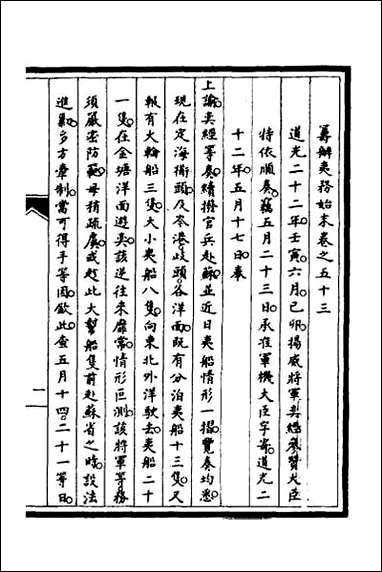 籌辦夷務始末卷之五十三
道光二十二年壬寅六月己卯揚威將軍奕經參贊大臣
特依順奏竊五月二十三日承准軍機大臣字寄道光二
十二年五月十七日奉
上諭奕經等奏續撥官兵赴蘇並近日夷船情形一摺覽奏均悉
現在定海衜頭及岑港歧頭各洋面既有分泊夷船十三隻又
報有大輪船三隻大小夷船八隻向東北外洋駛去夷船二十
一隻在金塘洋面遊奕該逆往來靡常情形叵測該將軍等務
須嚴密防範毋稍疏虞或趁此大幫船隻前赴蘇省之時設法
進剿多方牽制當可得手等因欽此僉五月十四二十一等日
二